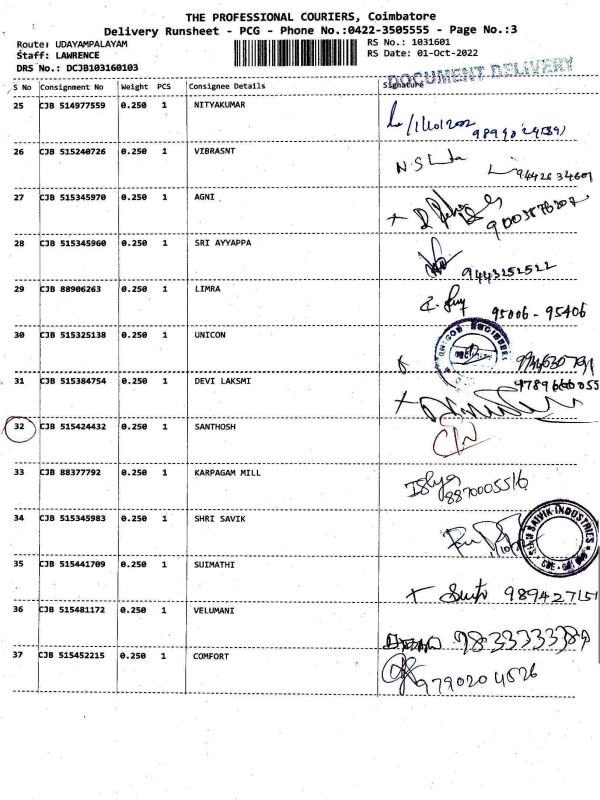 THE PROFESSIONAL COURIERS, Coimbatore
Delivery Runsheet - PCG - Phone No.:0422-3505555 - Page No.:3
Route: UDAYAMPALAYAM RS No.: 1031601
Staff: LAWRENCE RS Date: 01-Oct-2022
DRS No.: DCJB103160103
DOCUMENT DELIVERY
S No Consignment No Weight PCS Consignee Details Signature
25 CJB 514977559 0.250 1 NITYAKUMAR
26 CJB 515240726 0.250 1 VIBRASNT
9442634601
27 CJB 515345970 0.250 1 AGNI
28 CJB 515345960 0.250 1 SRI AYYAPPA
9443252522
29 CJB 88906263 0.250 1 LIMRA
95006-95406
30 CJB 515325138 0.250 1 UNICON
UNICON ENGINEERS
31 CJB 515384754 0.250 1 DEVI LAKSMI
9789660055
32 CJB 515424432 0.250 1 SANTHOSH
33 CJB 88377792 0.250 1 KARPAGAM MILL
8870005516
34 CJB 515345983 0.250 1 SHRI SAVIK
SAIVIK INDUSTRIES
35 CJB 515441709 0.250 1 SUIMATHI
989427151
36 CJB 515481172 0.250 1 VELUMANI
37 CJB 515452215 0.250 1 COMFORT
9790204526